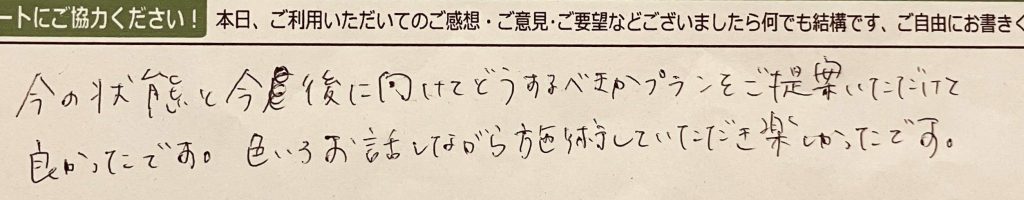 ートにご協力ください! 本日、ご利用いただいてのご感想・ご意見・ご要望などございましたら何でも結構です、ご自由にお書きく
今の状態と今後に向けてどうするべきかプランをご提案いただけて
良かったです。色いろお話しながら施術していただき楽しかったです。